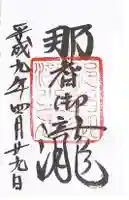 那智御瀧
平成九年四月廿九日